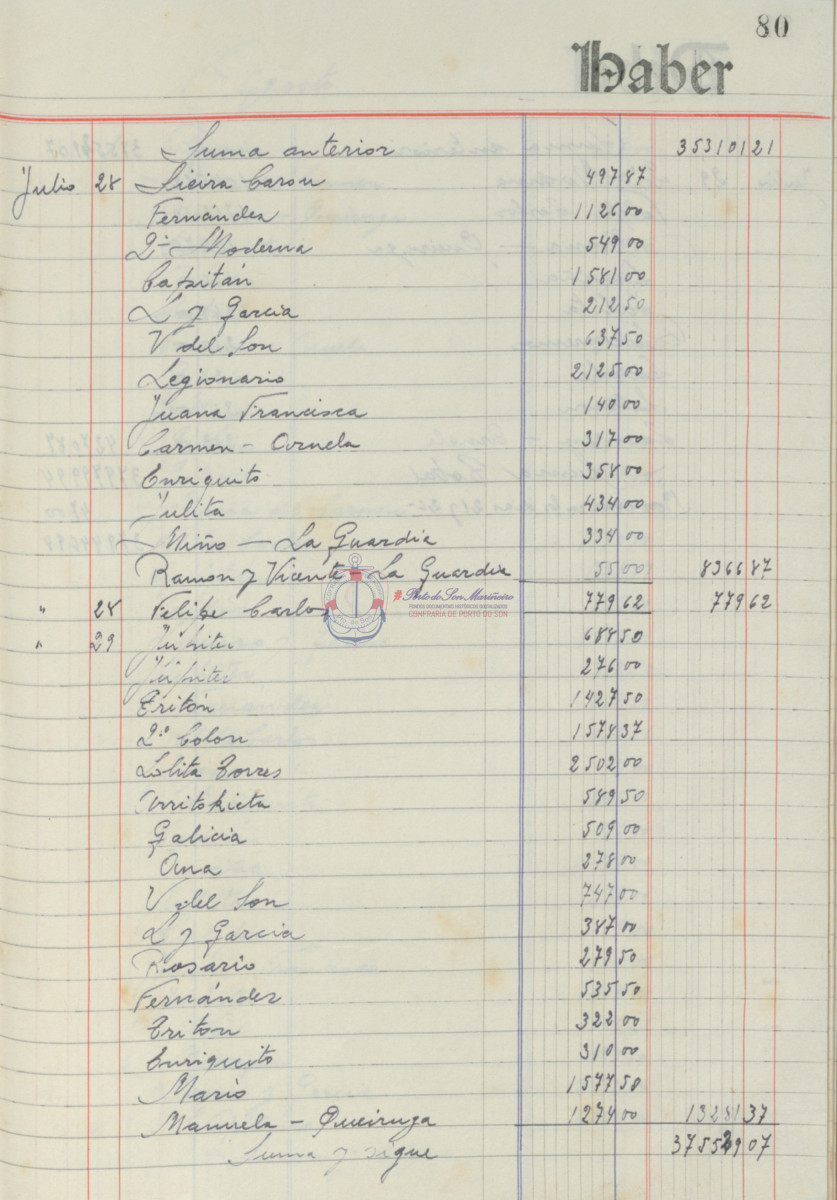 80
Haber
Suma anterior 353101 21
Julio 28 Sieira Carou 497 87
Fernández 1126 00
2ª Moderna 549 00
Capitán 1581 00
L y Garcia 212 50
V del Son 637 50
Legionario 2125 00
Juana Francisca 140 00
Carmen - Ornela 317 00
Enriquito 358 00
Julita 434 00
Miño - La Guardia 334 00
Ramon y Vicente La Guardia 55 00 8366 87
" 28 Felipe Carlos 779 62 779 62
" 29 Jupiter 688 50
Jupiter 276 00
Tritón 1427 50
2º Colon 1578 37
Lolita Torres 2502 00
Arritokieta 589 50
Galicia 509 00
Ana 278 00
V del Son 747 00
L y Garcia 387 00
Rosario 279 50
Fernández 535 50
Triton 322 00
Enriquito 310 00
Mario 1577 50
Manuela - Queiruga 1274 00 13281 37
Suma y sigue 375529 07
#Porto do Son Mariñeiro
FONDOS DOCUMENTAIS HISTÓRICOS DIXITALIZADOS
CONFRARÍA DE PORTO DO SON